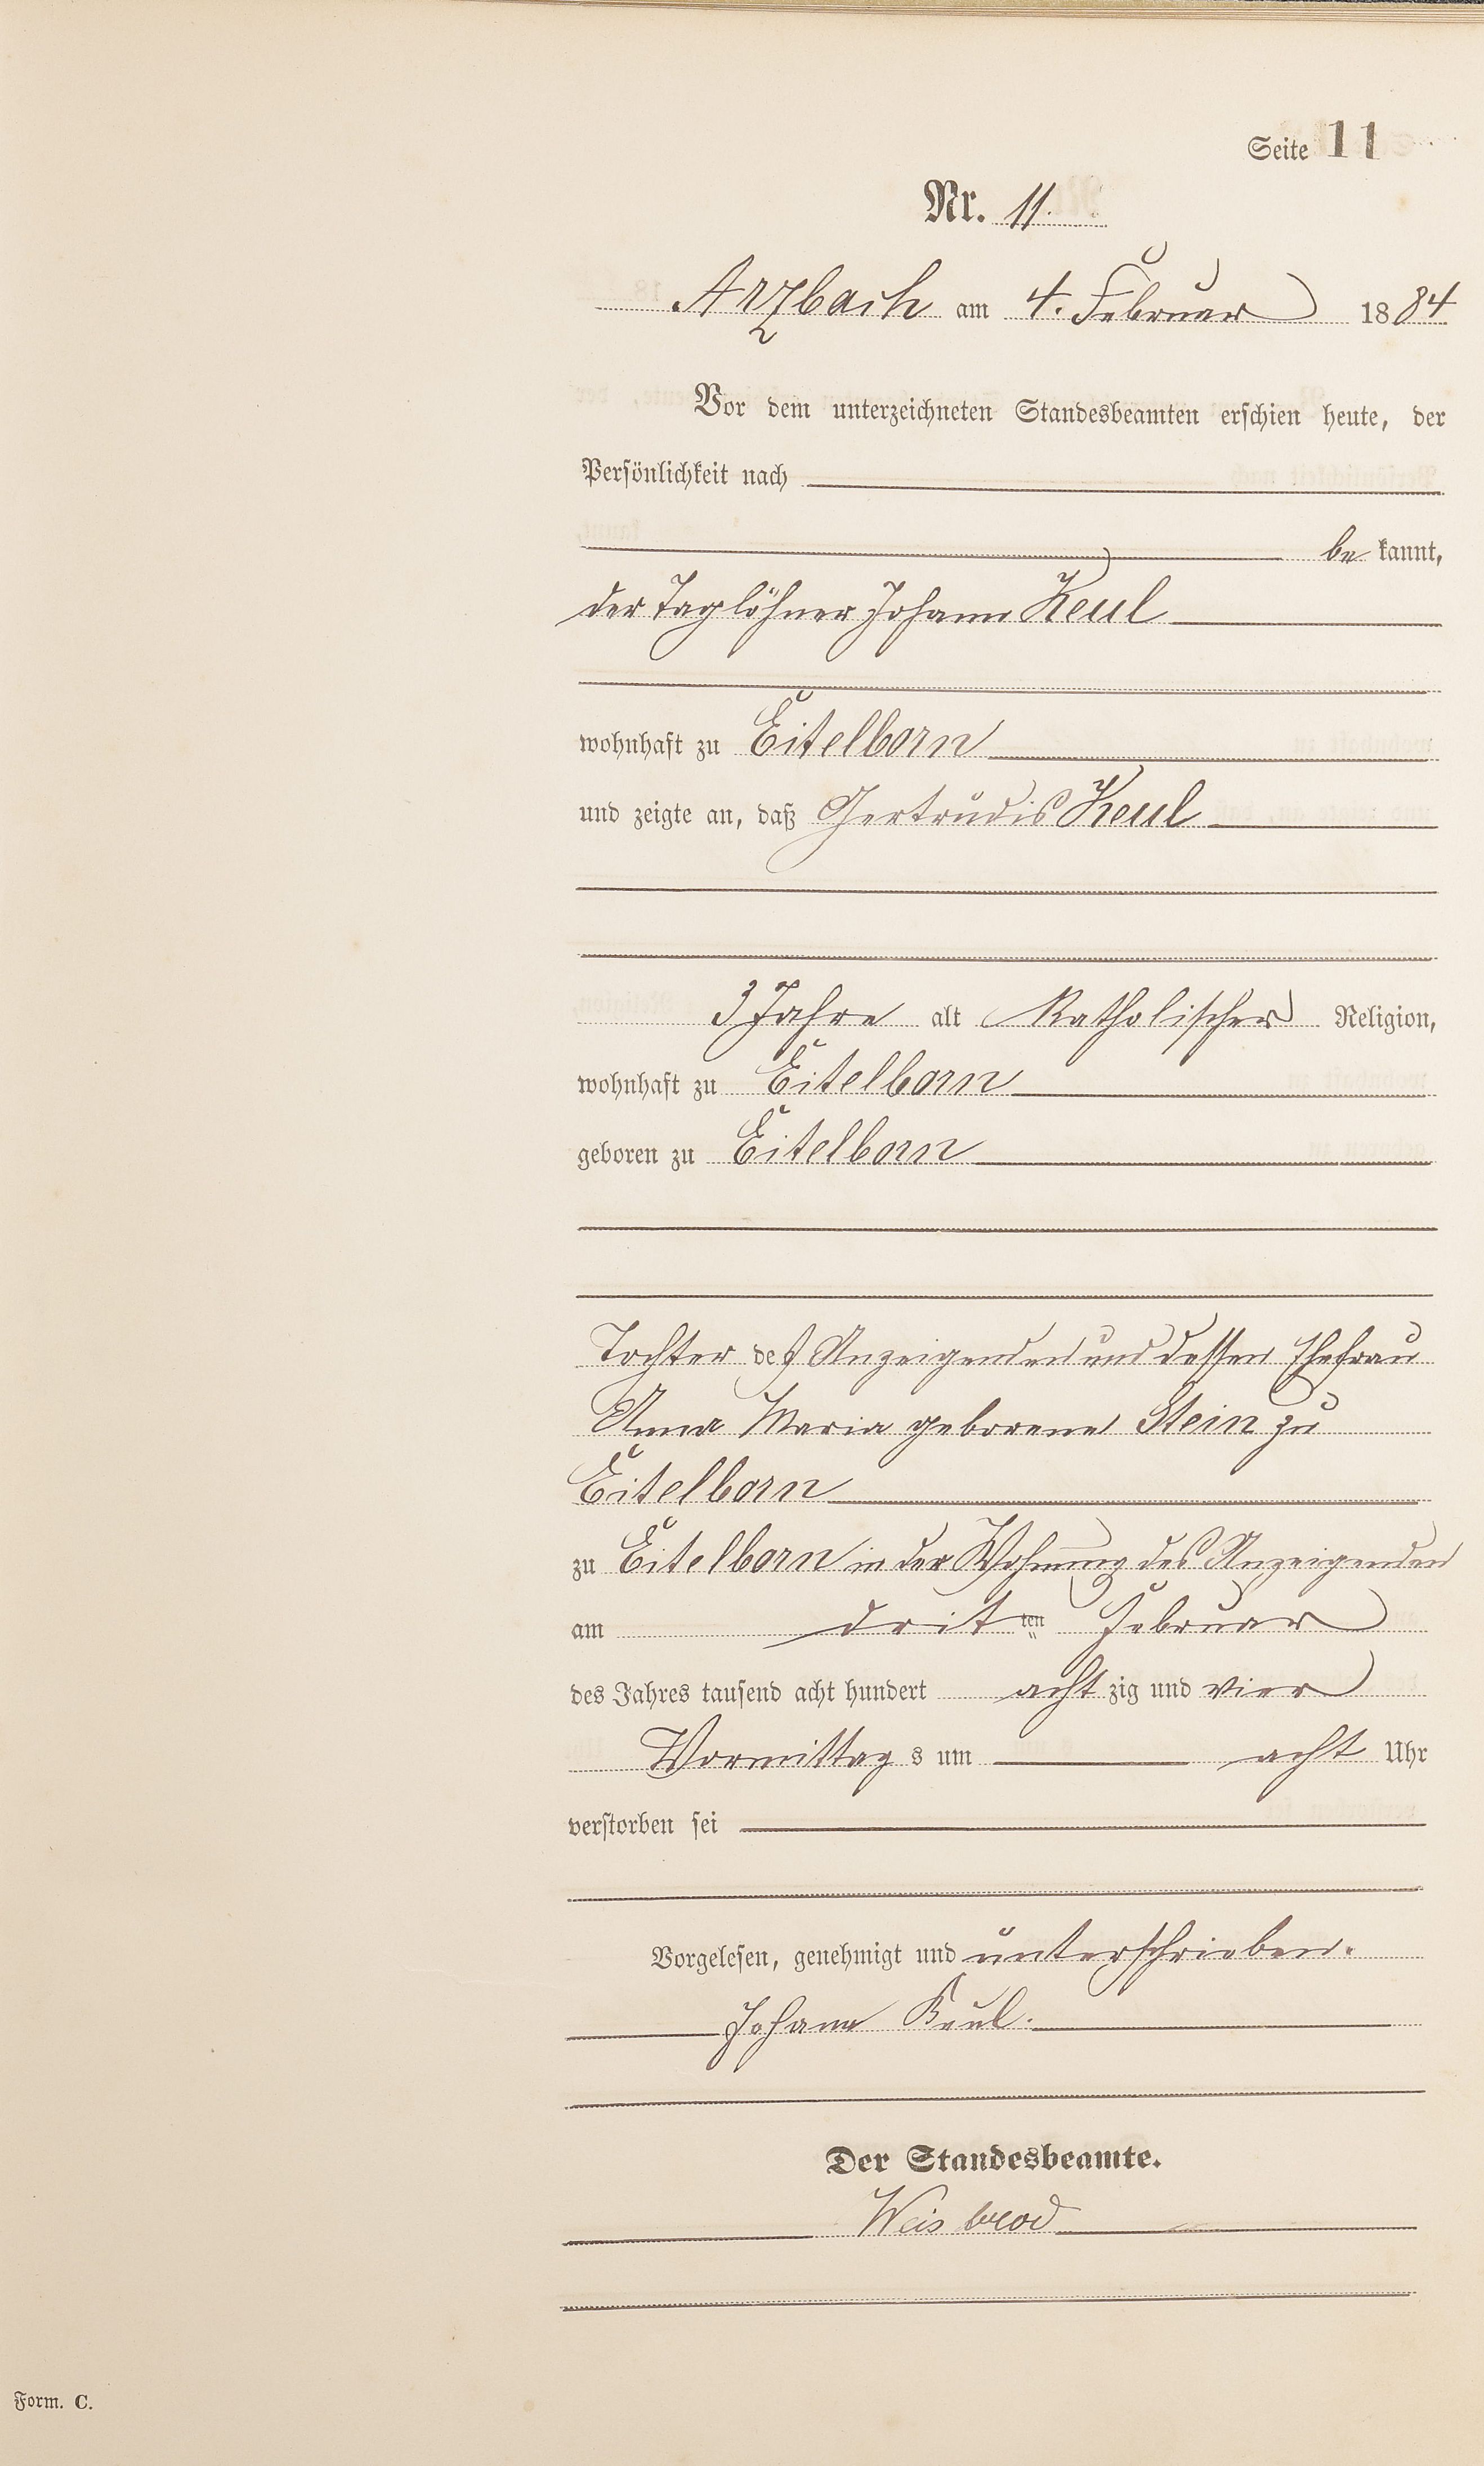 Seite 11
Nr. 11.
Arzbach am 4. Februar 1884
Vor dem unterzeichneten Standesbeamten erschien heute, der
Persönlichkeit nach
be kannt,
der Taglöhner Johann Keul
wohnhaft zu Eitelborn
und zeigte an, daß Gertrudis Keul
3 Jahre alt Katholischer Religion,
wohnhaft zu Eitelborn
geboren zu Eitelborn
Tochter des Anzeigenden und dessen Ehefrau
Anna Maria geborene Stein zu
Eitelborn
zu Eitelborn in der Wohnung des Anzeigenden
am dritten Februar
des Jahres tausend acht hundert achtzig und vier
Vormittags um acht Uhr
verstorben sei
Vorgelesen, genehmigt und unterschrieben.
Johann Keul.
Der Standesbeamte.
Weisbrod
Form. C.